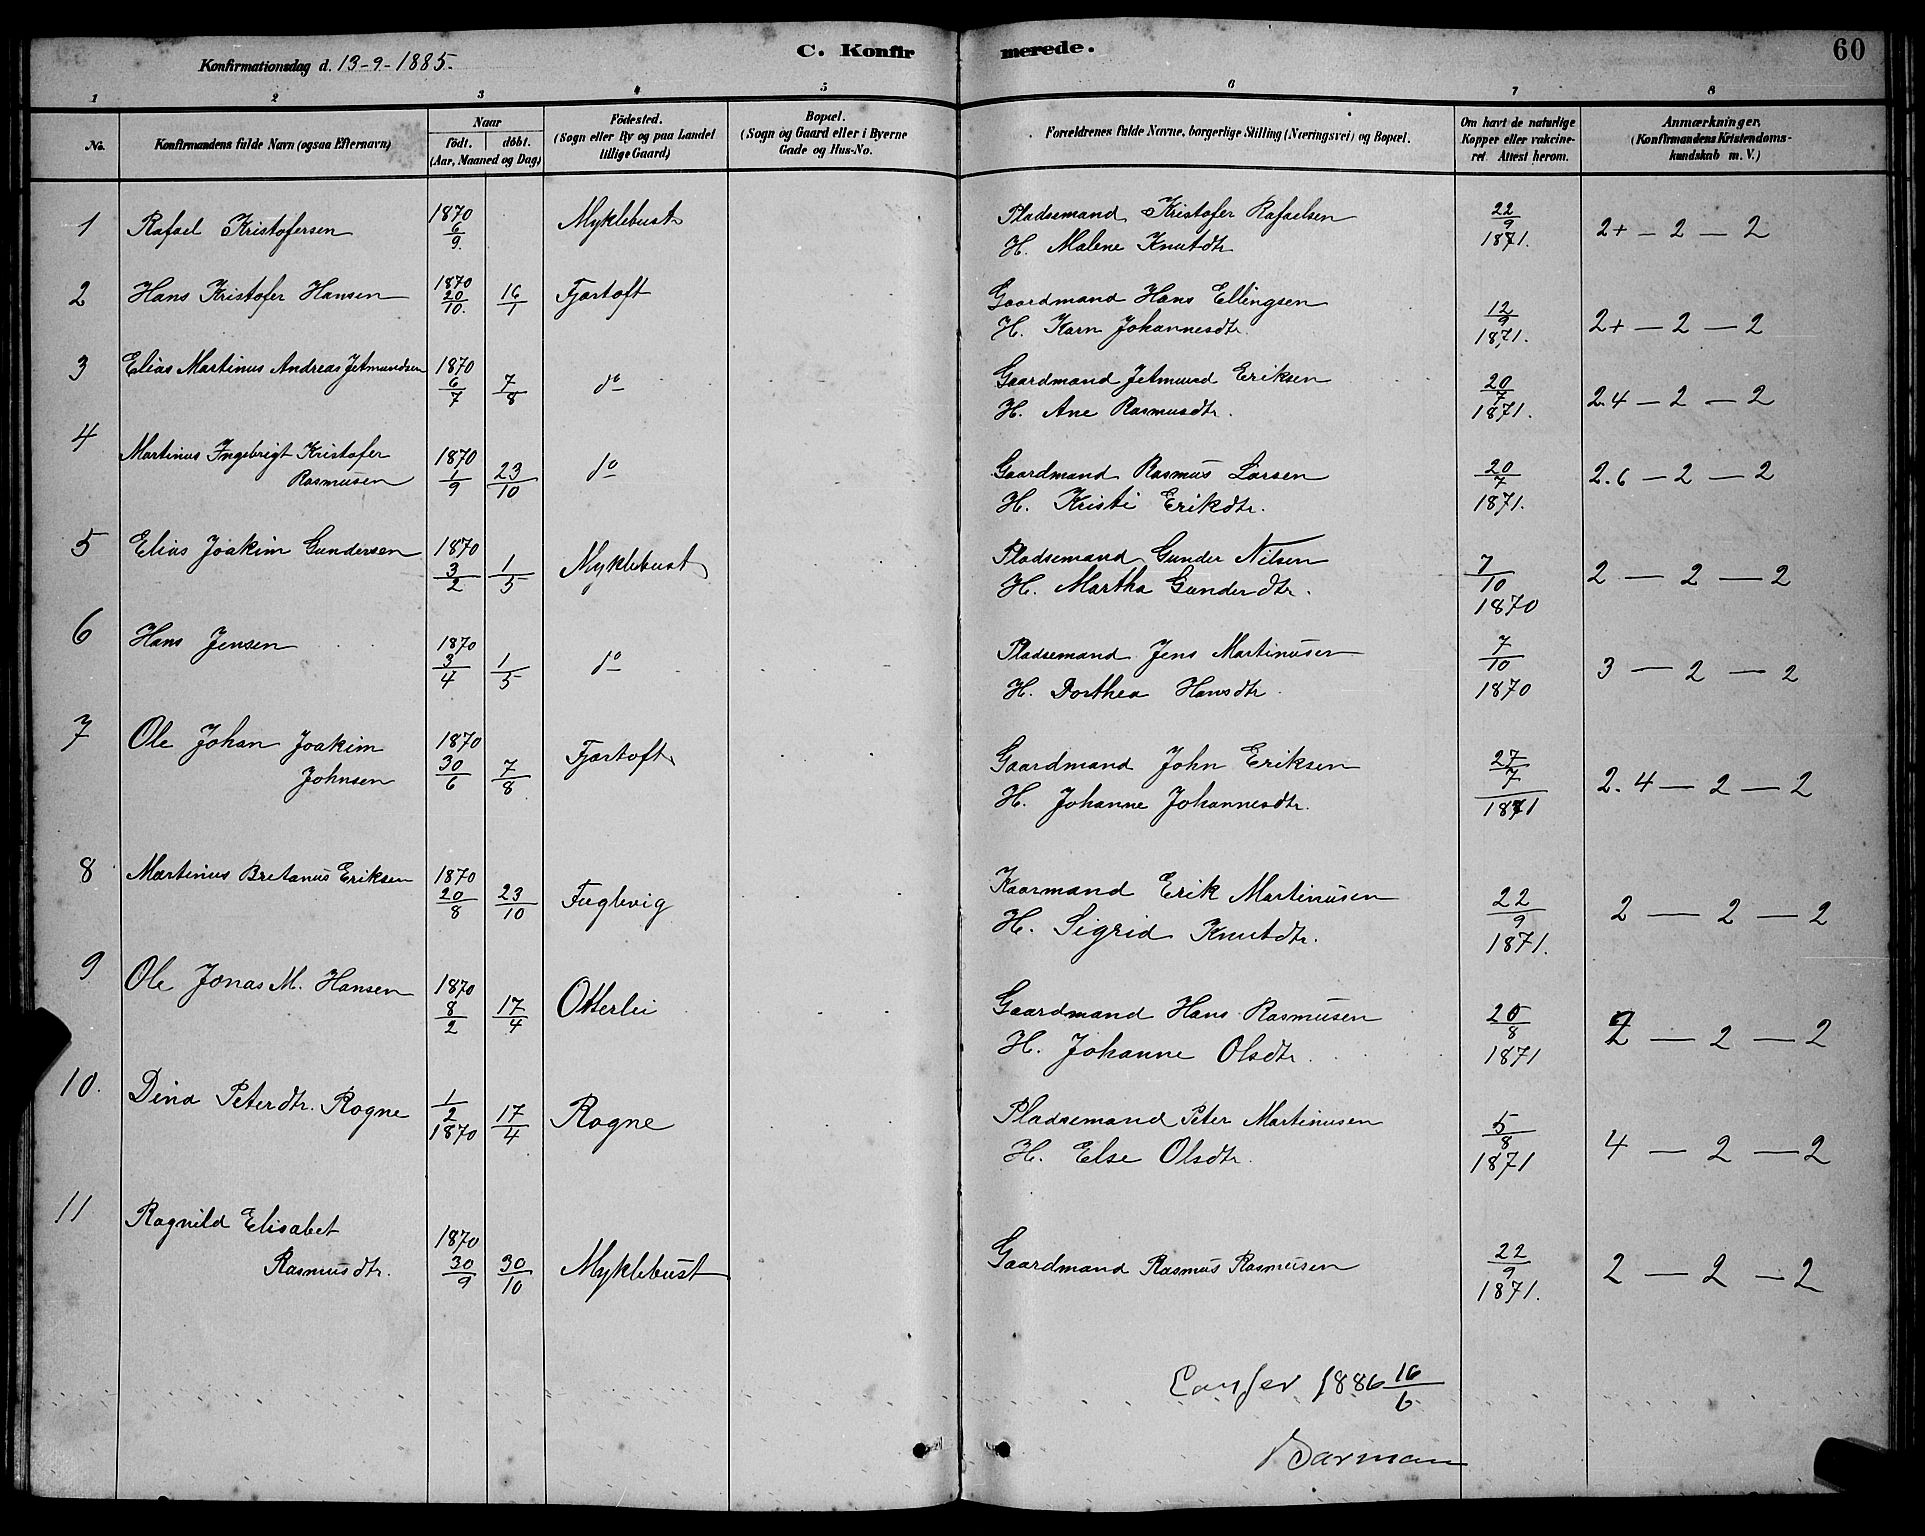 Konfirmationsdag d. 13-9-1885.
C. Konfirmerede.
60
1 2 3 4 5 6 7 8
No.
Konfirmandens fulde Navn (ogsaa Efternavn)
Naar
födt. döbt.
(Aar, Maaned og Dag)
Födested.
(Sogn eller By og paa Landet
tillige Gaard)
Bopæl.
(Sogn og Gaard eller i Byerne
Gade og Hus-No.
Forældrenes fulde Navne, borgerlige Stilling (Næringsvei) og Bopæl.
Om havt de naturlige
Kopper eller vakcine-
ret. Attest herom.
Anmærkninger,
(Konfirmandens Kristendoms-
kundskab m. V.)
1 Rafael Kristofersen 1870 6/9. Myklebust Pladsemand Kristofer Rafaelsen 22/9 1871. 2+ — 2 — 2
H. Malene Knutdtr
2 Hans Kristofer Hansen 1870 20/10. 16/1 Fjærtoft Gaardmand Hans Ellingsen 12/9 1871. 2+ — 2 — 2
H. Karn Johannesdtr.
3 Elias Martinus Andreas Jetmundsen 1870 6/7 7/8 do Gaardmand Jetmund Eriksen 20/7 1871. 2.4 — 2 — 2
H. Ane Rasmusdtr.
4 Martinus Ingebrigt Kristofer
Rasmusen 1870 1/9 23/10 do Gaardmand Rasmus Larsen 20/7 1871. 2.6 — 2 — 2
H. Kristi Erikdtr.
5 Elias Joakim Gundersen 1870 3/2 1/5 Myklebust Pladsemand Gunder Nilsen 7/10 1870 2 — 2 — 2
H. Martha Gunderdtr.
6 Hans Jensen 1870 3/4 1/5 do Pladsemand Jens Martinusen 7/10 1870 3 — 2 — 2
H. Dorthea Hansdtr.
7 Ole Johan Joakim
Johnsen 1870 30/6 7/8 Fjærtoft Gaardmand John Eriksen 27/7 1871 2.4 — 2 — 2
H. Johanne Johannesdtr.
8 Martinus Bretanus Eriksen 1870 20/8 23/10 Fuglevig Kaarmand Erik Martinusen 22/9 1871. 2 — 2 — 2
H. Sigrid Knutdtr.
9 Ole Jonas M. Hansen 1870 8/2 17/4 Otterlei Gaardmand Hans Rasmusen 20/8 1871 2 — 2 — 2
H. Johanne Olsdtr.
10. Dina Peterdtr. Rogne 1/2 1870 17/4 Rogne Pladsemand Peter Martinusen 5/8 1871 4 — 2 — 2
H. Else Olsdtr.
11 Ragnild Elisabet
Rasmusdtr. 1870 30/9 30/10 Myklebust Gaardmand Rasmus Rasmusen 22/9 1871. 2 — 2 — 2
Confer 1886 16/6
Barman